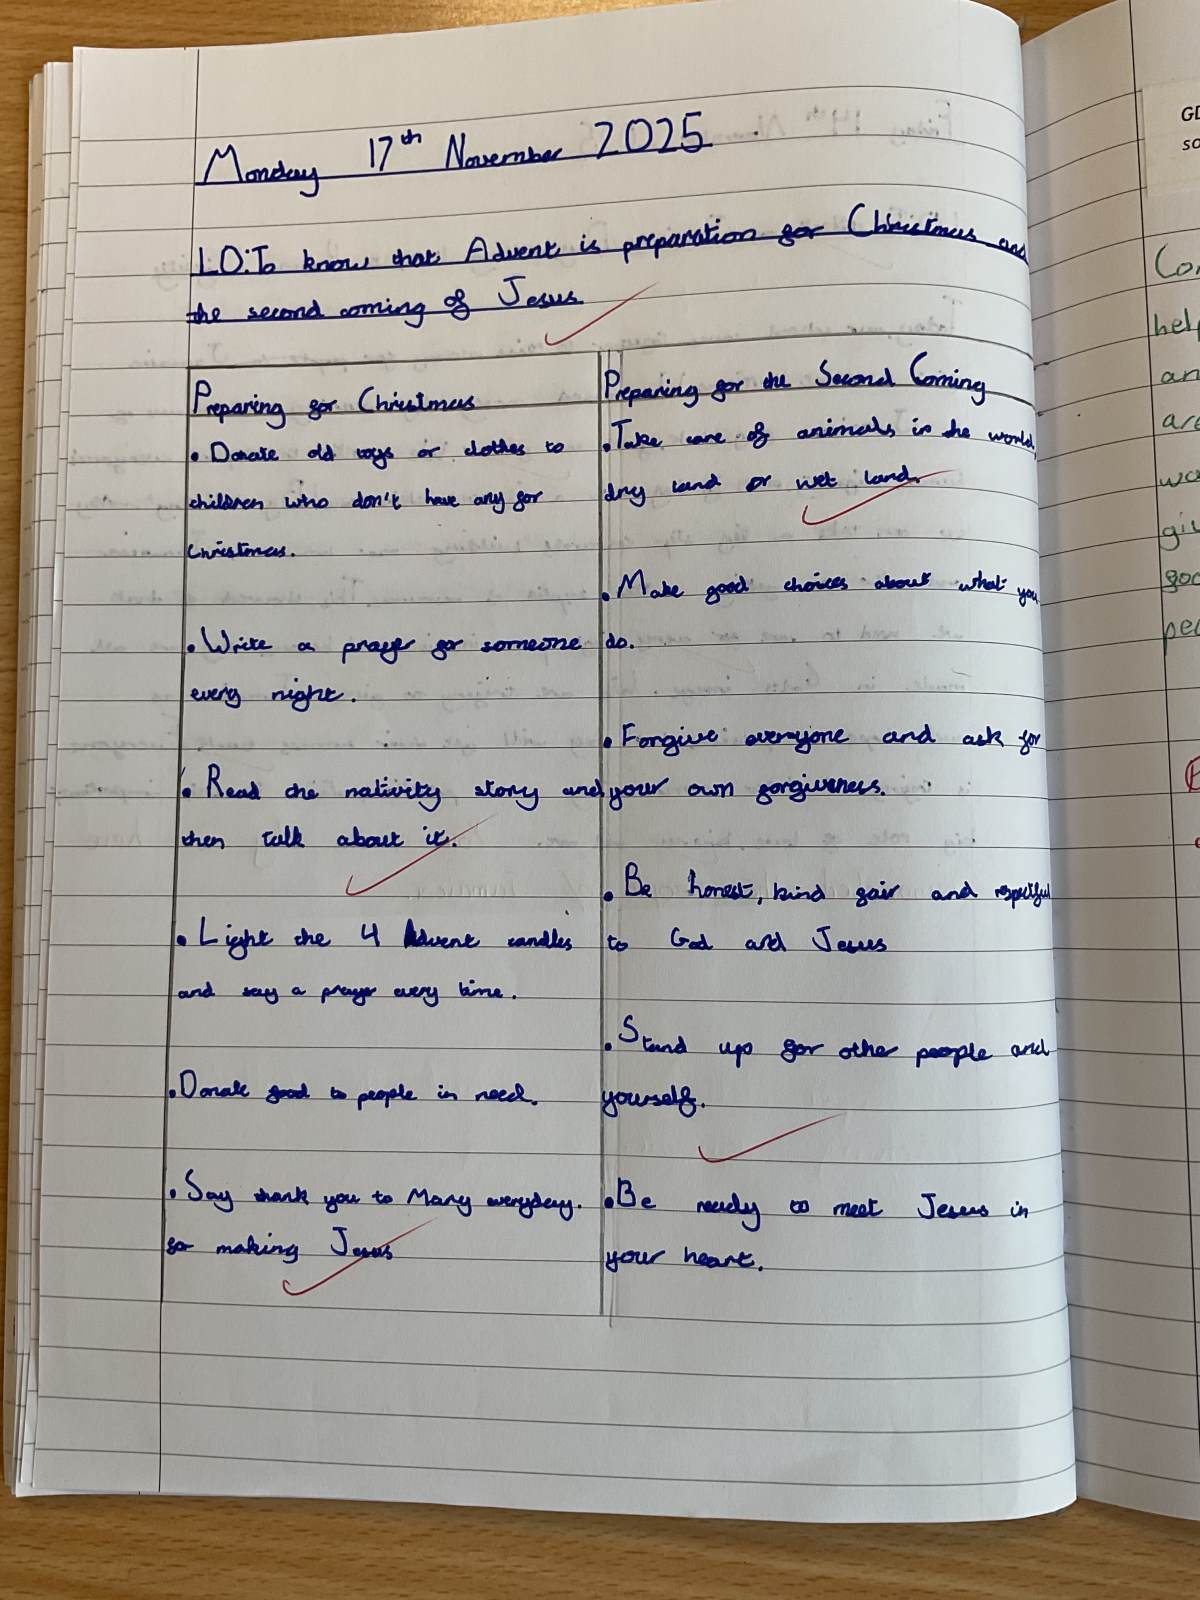 Monday 17th November 2025
LO: To know that Advent is preparation for Christmas and
the second coming of Jesus.
Preparing for Christmas
• Donate old toys or clothes to
children who don't have any for
Christmas.
• Write a prayer for someone
every night.
• Read the nativity story and
then talk about it.
• Light the 4 Advent candles
and say a prayer every time.
• Donate food to people in need.
• Say thank you to Mary everyday.
for making Jesus
Preparing for the Second Coming
• Take care of animals in the world,
dry land or wet land.
• Make good choices about what you
do.
• Forgive everyone and ask for
your own forgiveness.
• Be honest, kind fair and respectful
to God and Jesus
• Stand up for other people and
yourself.
• Be ready to meet Jesus in
your heart.
GD
so
Con
help
an
are
giv